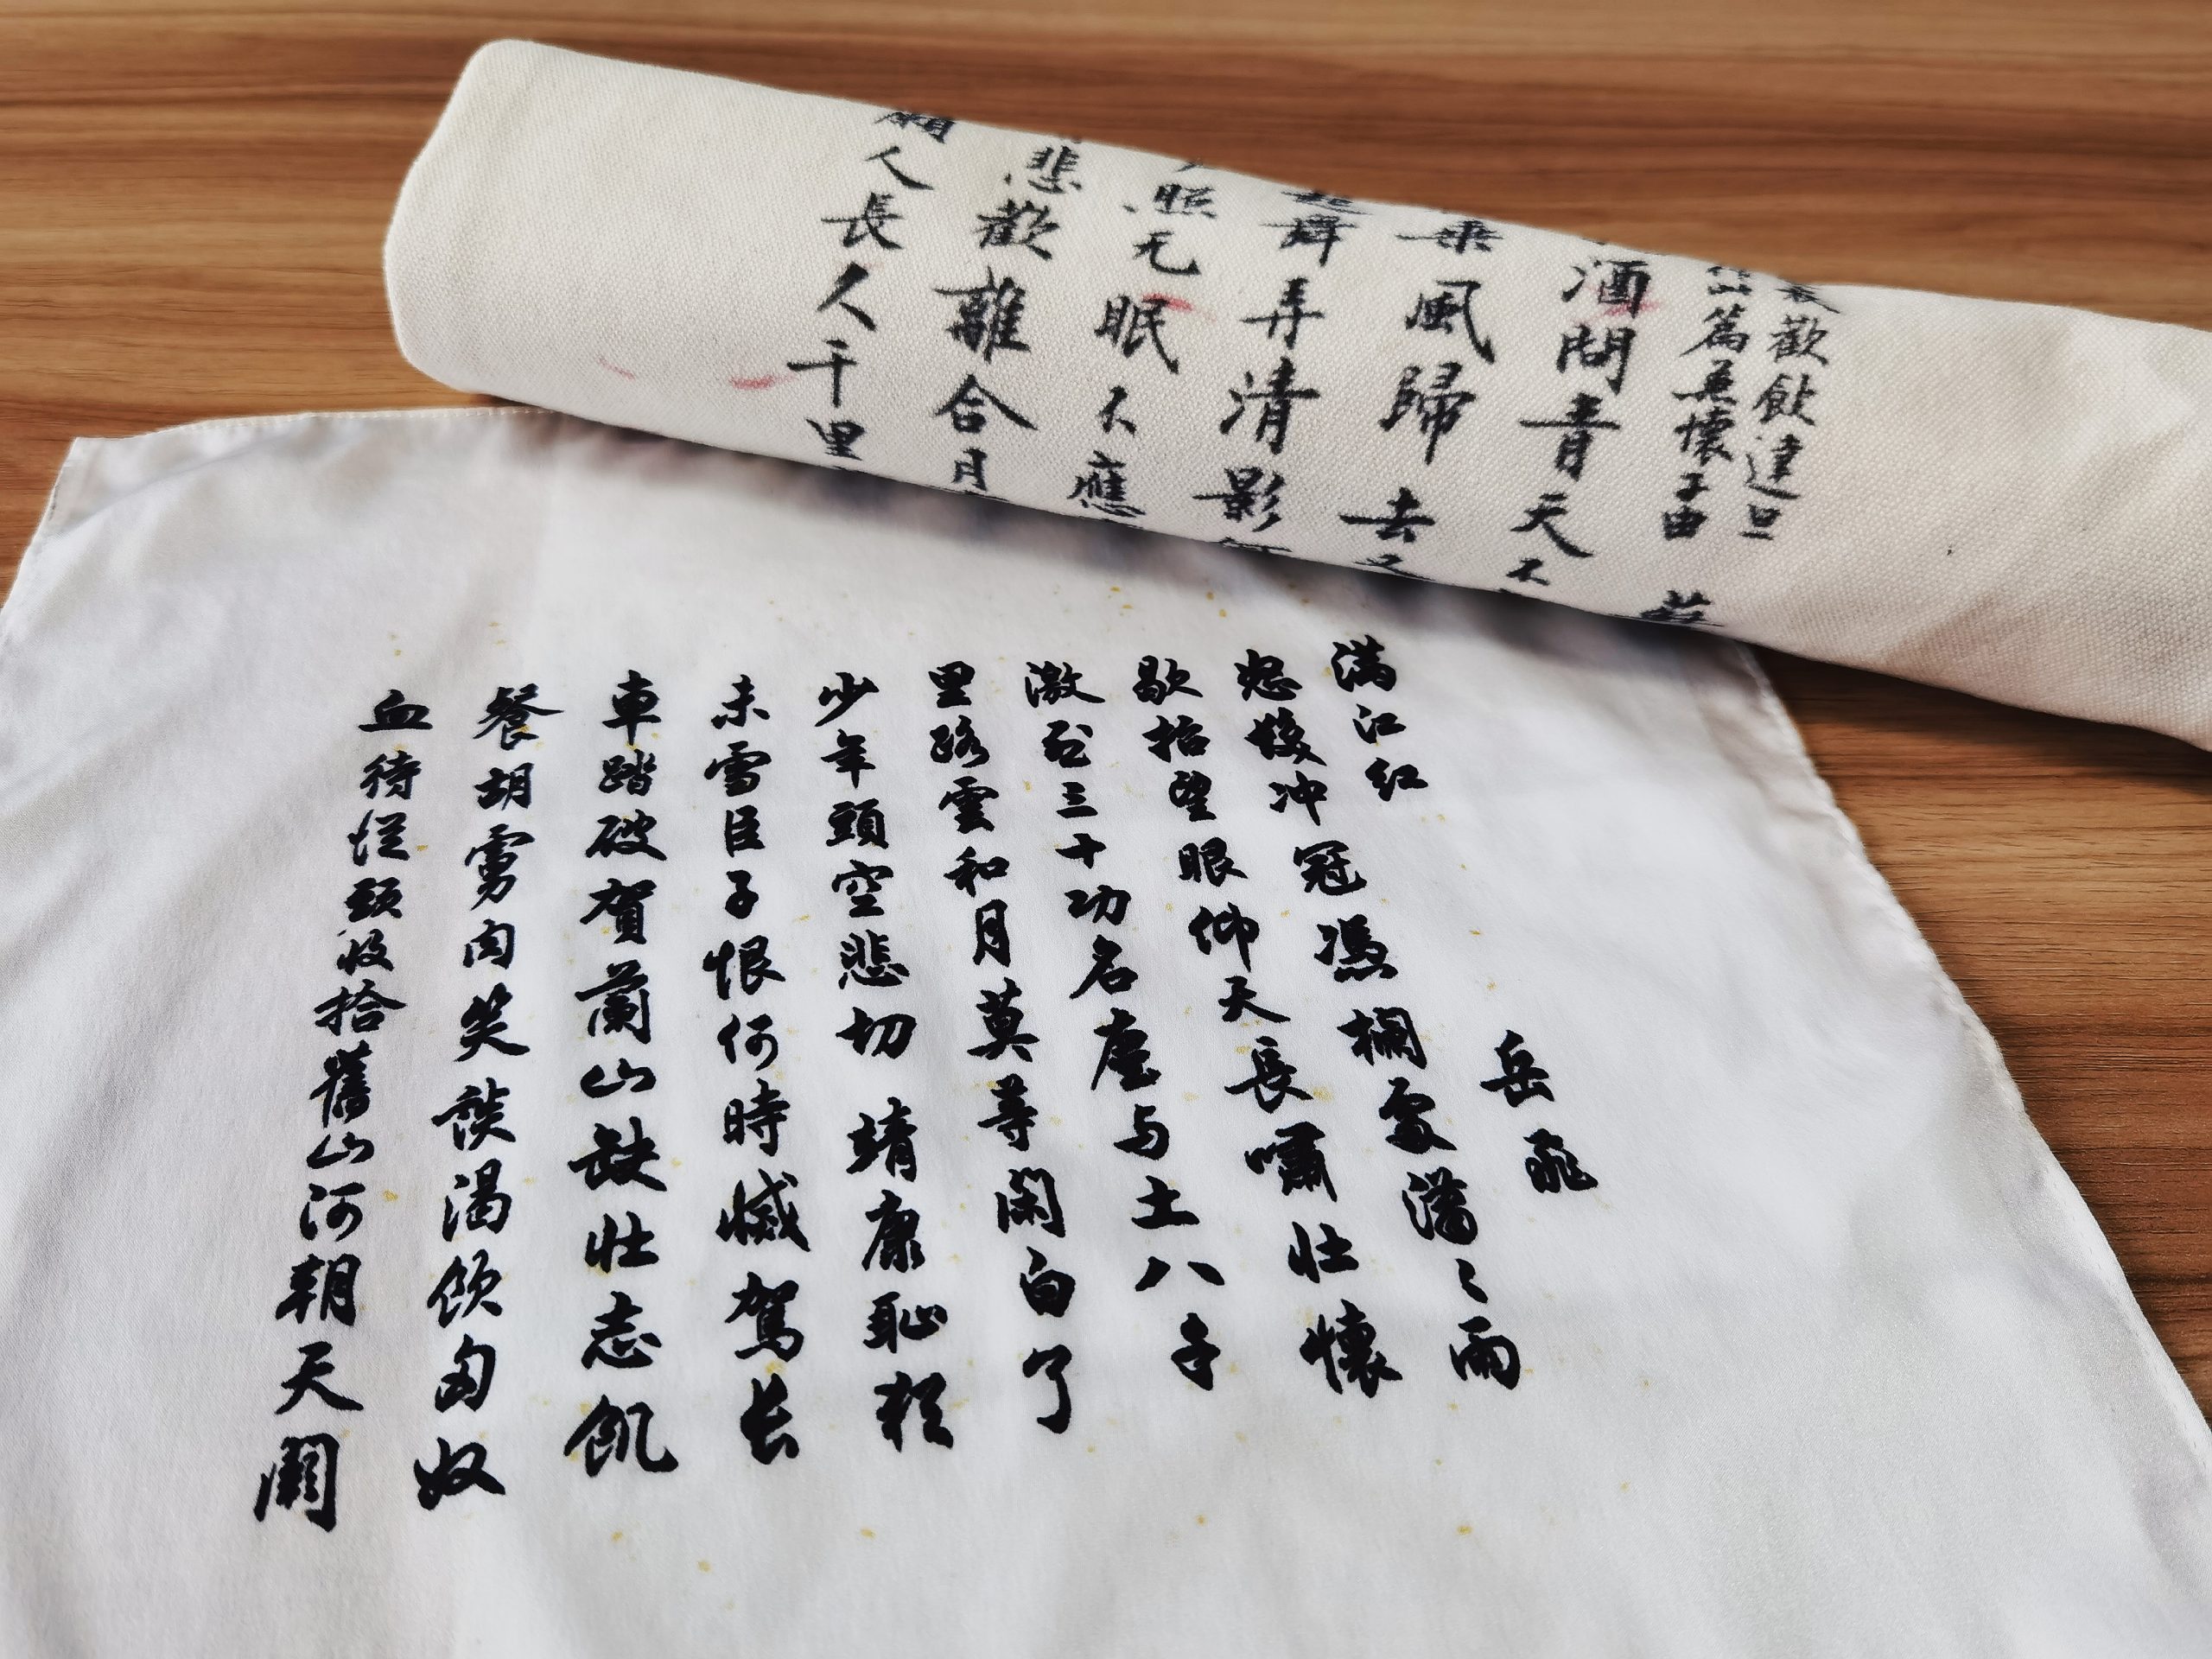 歡飲達旦
篇兼懷子由
酒問青天不
乘風歸去又
起舞弄清影
照无眠不應
悲歡離合月
人長久千里
满江红 岳飛
怒髮冲冠憑欄處潇〻雨
歇抬望眼仰天長嘯壯懷
激烈三十功名塵与土八千
里路雲和月莫等閑白了
少年頭空悲切靖康恥猶
未雪臣子恨何時憾駕长
車踏破賀蘭山缺壯志飢
餐胡虜肉笑談渴飲匈奴
血待從頭收拾舊山河朝天闕